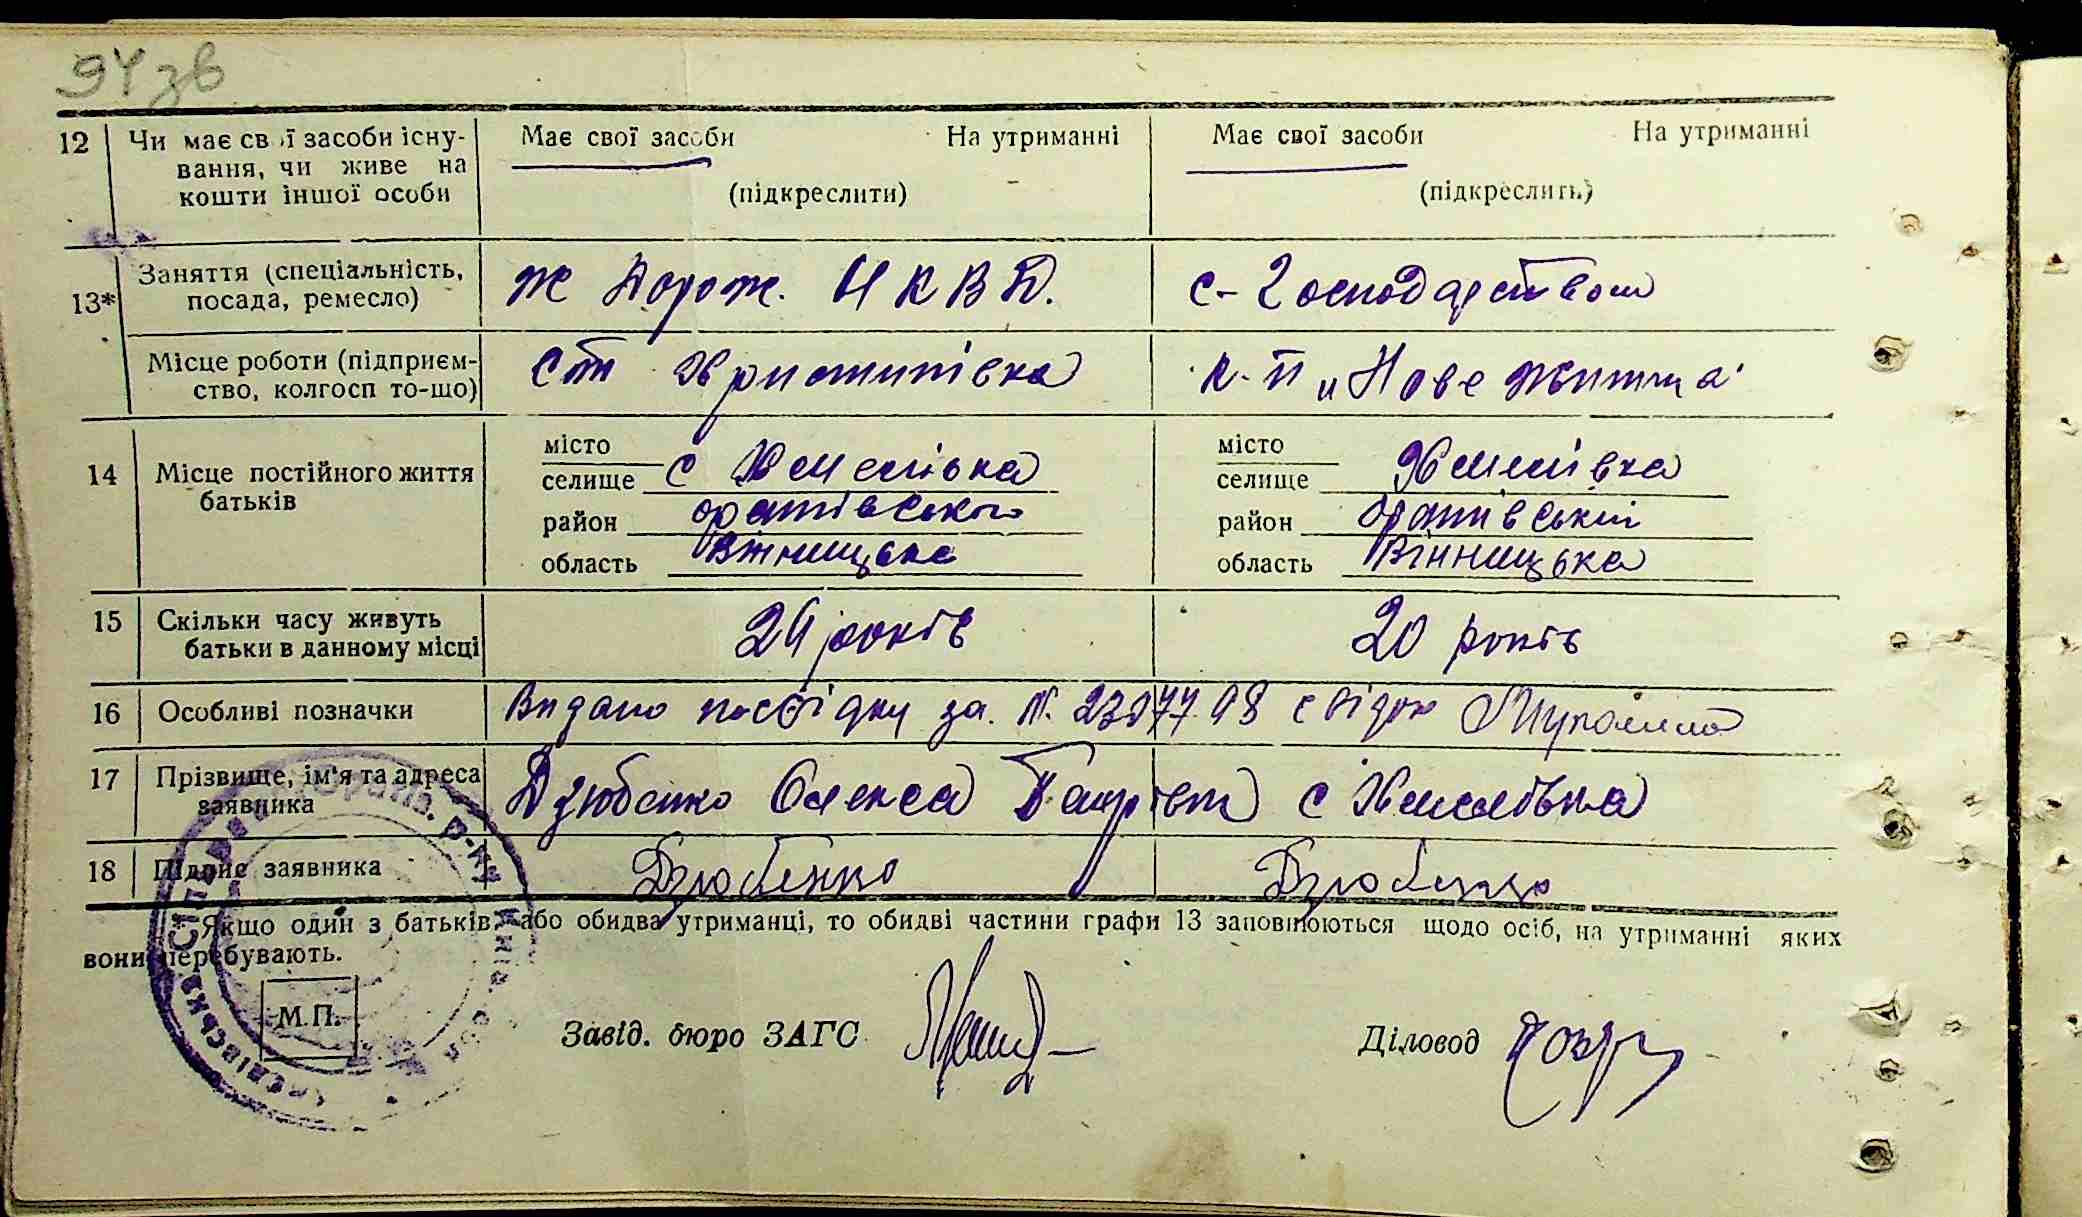 94 зв
12 Чи має свої засоби існу- Має свої засоби На утриманні Має свої засоби На утриманні
вання, чи живе на
кошти іншої особи (підкреслити) (підкреслить)
13* Заняття (спеціальність, ж Дорож. Н К В Д. с-господарством
посада, ремесло)
Місце роботи (підприєм- ст Христинівка к-п "Нове життя"
ство, колгосп то-що)
14 Місце постійного життя місто місто
батьків селище с Хмелівка селище Хмелівка
район оратівського район оратівський
область Вінницька область Вінницька
15 Скільки часу живуть 24 років 20 років
батьки в данному місці
16 Особливі позначки Видано посвідку за. №
17 Прізвище, ім'я та адреса Дзюбенко Олекса с Хмелівка
заявника
18 Підпис заявника Дзюбенко Дзюбенко
Якщо один з батьків або обидва утриманці, то обидві частини графи 13 заповнюються щодо осіб, на утриманні яких
вони перебувають.
М.П. Завід. бюро ЗАГС Діловод